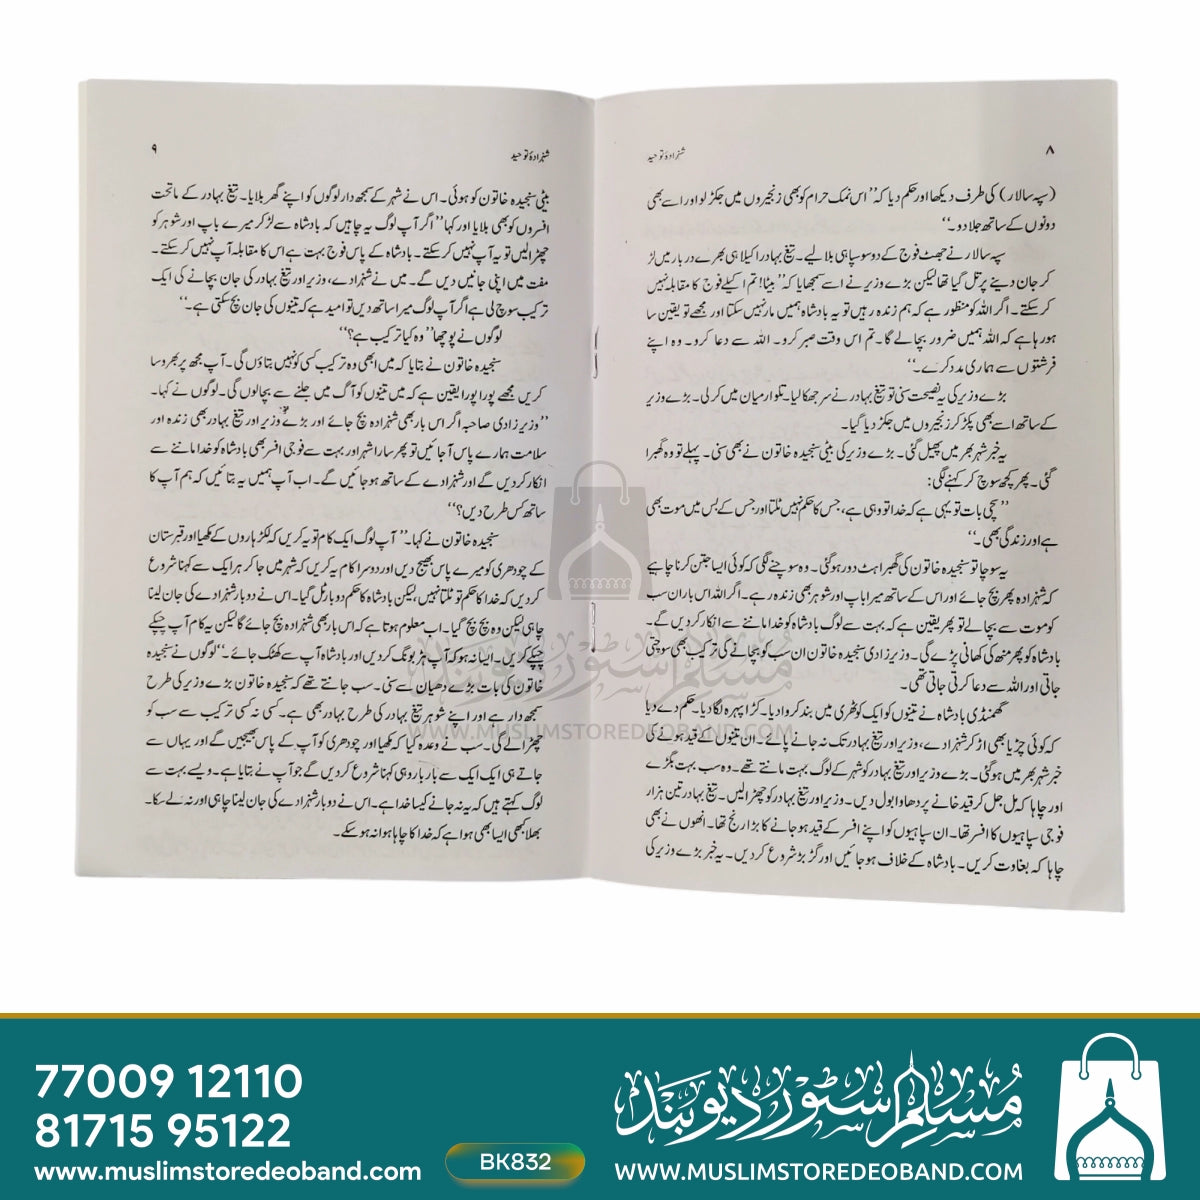 ۸
شہزادۂ توحید
(سپہ سالار) کی طرف دیکھا اور حکم دیا کہ ”اس نمک حرام کو بھی زنجیروں میں جکڑ لو اور اسے بھی
دونوں کے ساتھ جلا دو۔“
سپہ سالار نے جھٹ فوج کے دو سو سپاہی بلا لیے۔ تیغ بہادر اکیلا ہی بھرے دربار میں لڑ
کر جان دینے پر تل گیا تھا لیکن بڑے وزیر نے اسے سمجھایا کہ ”بیٹا! تم اکیلے فوج کا مقابلہ نہیں
کر سکتے۔ اگر اللہ کو منظور ہے کہ ہم زندہ رہیں تو یہ بادشاہ ہمیں مار نہیں سکتا اور مجھے تو یقین سا
ہو رہا ہے کہ اللہ ہمیں ضرور بچالے گا۔ تم اس وقت صبر کرو۔ اللہ سے دعا کرو۔ وہ اپنے
فرشتوں سے ہماری مدد کرے۔“
بڑے وزیر کی یہ نصیحت سنی تو تیغ بہادر نے سر جھکا لیا۔ تلوار میان میں کر لی۔ بڑے وزیر
کے ساتھ اسے بھی پکڑ کر زنجیروں میں جکڑ دیا گیا۔
یہ خبر شہر بھر میں پھیل گئی۔ بڑے وزیر کی بیٹی سنجیدہ خاتون نے بھی سنی۔ پہلے تو وہ گھبرا
گئی۔ پھر کچھ سوچ کر کہنے لگی:
”سچی بات تو یہی ہے کہ خدا تو وہی ہے، جس کا حکم نہیں ٹلتا اور جس کے بس میں موت بھی
ہے اور زندگی بھی۔“
یہ سوچا تو سنجیدہ خاتون کی گھبراہٹ دور ہو گئی۔ وہ سوچنے لگی کہ کوئی ایسا جتن کرنا چاہیے
کہ شہزادہ پھر بچ جائے اور اس کے ساتھ میرا باپ اور شوہر بھی زندہ رہے۔ اگر اللہ اس بار ان سب
کو موت سے بچالے تو پھر یقین ہے کہ بہت سے لوگ بادشاہ کو خدا ماننے سے انکار کر دیں گے۔
بادشاہ کو پھر منھ کی کھانی پڑے گی۔ وزیر زادی سنجیدہ خاتون ان سب کو بچانے کی ترکیب بھی سوچتی
جاتی اور اللہ سے دعا کرتی جاتی تھی۔
گھمنڈی بادشاہ نے تینوں کو ایک کوٹھری میں بند کروا دیا۔ کڑا پہرہ لگا دیا۔ حکم دے دیا
کہ کوئی چڑیا بھی اڑ کر شہزادے، وزیر اور تیغ بہادر تک نہ جانے پائے۔ ان تینوں کے قید ہونے کی
خبر شہر بھر میں ہو گئی۔ بڑے وزیر اور تیغ بہادر کو شہر کے لوگ بہت مانتے تھے۔ وہ سب بہت بگڑے
اور چاہا کہ مل جل کر قید خانے پر دھاوا بول دیں۔ وزیر اور تیغ بہادر کو چھڑا لیں۔ تیغ بہادر تین ہزار
فوجی سپاہیوں کا افسر تھا۔ ان سپاہیوں کو اپنے افسر کے قید ہو جانے کا بڑا رنج تھا۔ انھوں نے بھی
چاہا کہ بغاوت کریں۔ بادشاہ کے خلاف ہو جائیں اور گڑ بڑ شروع کر دیں۔ یہ خبر بڑے وزیر کی
شہزادۂ توحید
۹
بیٹی سنجیدہ خاتون کو ہوئی۔ اس نے شہر کے سمجھ دار لوگوں کو اپنے گھر بلایا۔ تیغ بہادر کے ماتحت
افسروں کو بھی بلایا اور کہا ”اگر آپ لوگ یہ چاہیں کہ بادشاہ سے لڑ کر میرے باپ اور شوہر کو
چھڑا لیں تو یہ آپ نہیں کر سکتے۔ بادشاہ کے پاس فوج بہت ہے اس کا مقابلہ آپ نہیں کر سکتے۔
مفت میں اپنی جانیں دیں گے۔ میں نے شہزادے، وزیر اور تیغ بہادر کی جان بچانے کی ایک
ترکیب سوچ لی ہے اگر آپ لوگ میرا ساتھ دیں تو امید ہے کہ تینوں کی جان بچ سکتی ہے۔“
لوگوں نے پوچھا ”وہ کیا ترکیب ہے؟“
سنجیدہ خاتون نے بتایا کہ میں ابھی وہ ترکیب کسی کو نہیں بتاؤں گی۔ آپ مجھ پر بھروسا
کریں مجھے پورا پورا یقین ہے کہ میں تینوں کو آگ میں جلنے سے بچالوں گی۔ لوگوں نے کہا۔
”وزیر زادی صاحبہ اگر اس بار بھی شہزادہ بچ جائے اور بڑے وزیر اور تیغ بہادر بھی زندہ اور
سلامت ہمارے پاس آجائیں تو پھر سارا شہر اور بہت سے فوجی افسر بھی بادشاہ کو خدا ماننے سے
انکار کر دیں گے اور شہزادے کے ساتھ ہو جائیں گے۔ اب آپ ہمیں یہ بتائیں کہ ہم آپ کا
ساتھ کس طرح دیں؟“
سنجیدہ خاتون نے کہا۔ ”آپ لوگ ایک کام تو یہ کریں کہ لکڑہاروں کے مکھیا اور قبرستان
کے چودھری کو میرے پاس بھیج دیں اور دوسرا کام یہ کریں کہ شہر میں جا کر ہر ایک سے کہنا شروع
کر دیں کہ خدا کا حکم تو ٹلتا نہیں، لیکن بادشاہ کا حکم دوبار ٹل گیا۔ اس نے دوبار شہزادے کی جان لینا
چاہی لیکن وہ بچ بچ گیا۔ اب معلوم ہوتا ہے کہ اس بار بھی شہزادہ بچ جائے گا لیکن یہ کام آپ چپکے
چپکے کریں۔ ایسا نہ ہو کہ آپ ہڑبونگ کر دیں اور بادشاہ آپ سے کھٹک جائے۔“ لوگوں نے سنجیدہ
خاتون کی بات بڑے دھیان سے سنی۔ سب جانتے تھے کہ سنجیدہ خاتون بڑے وزیر کی طرح
سمجھ دار ہے اور اپنے شوہر تیغ بہادر کی طرح بہادر بھی ہے۔ کسی نہ کسی ترکیب سے سب کو
چھڑا لے گی۔ سب نے وعدہ کیا کہ مکھیا اور چودھری کو آپ کے پاس بھیجیں گے اور یہاں سے
جاتے ہی ایک ایک سے بار بار وہی کہنا شروع کر دیں گے جو آپ نے بتایا ہے۔ ویسے بہت سے
لوگ کہتے ہیں کہ یہ نہ جانے کیسا خدا ہے۔ اس نے دوبار شہزادے کی جان لینا چاہی اور نہ لے سکا۔
بھلا کبھی ایسا بھی ہوا ہے کہ خدا کا چاہا ہوا نہ ہو سکے۔
مسلم سٹور دیوبند
WWW.MUSLIMSTOREDEOBAND.COM
77009 12110
81715 95122
www.muslimstoredeoband.com
BK832
مسلم سٹور دیوبند
WWW.MUSLIMSTOREDEOBAND.COM